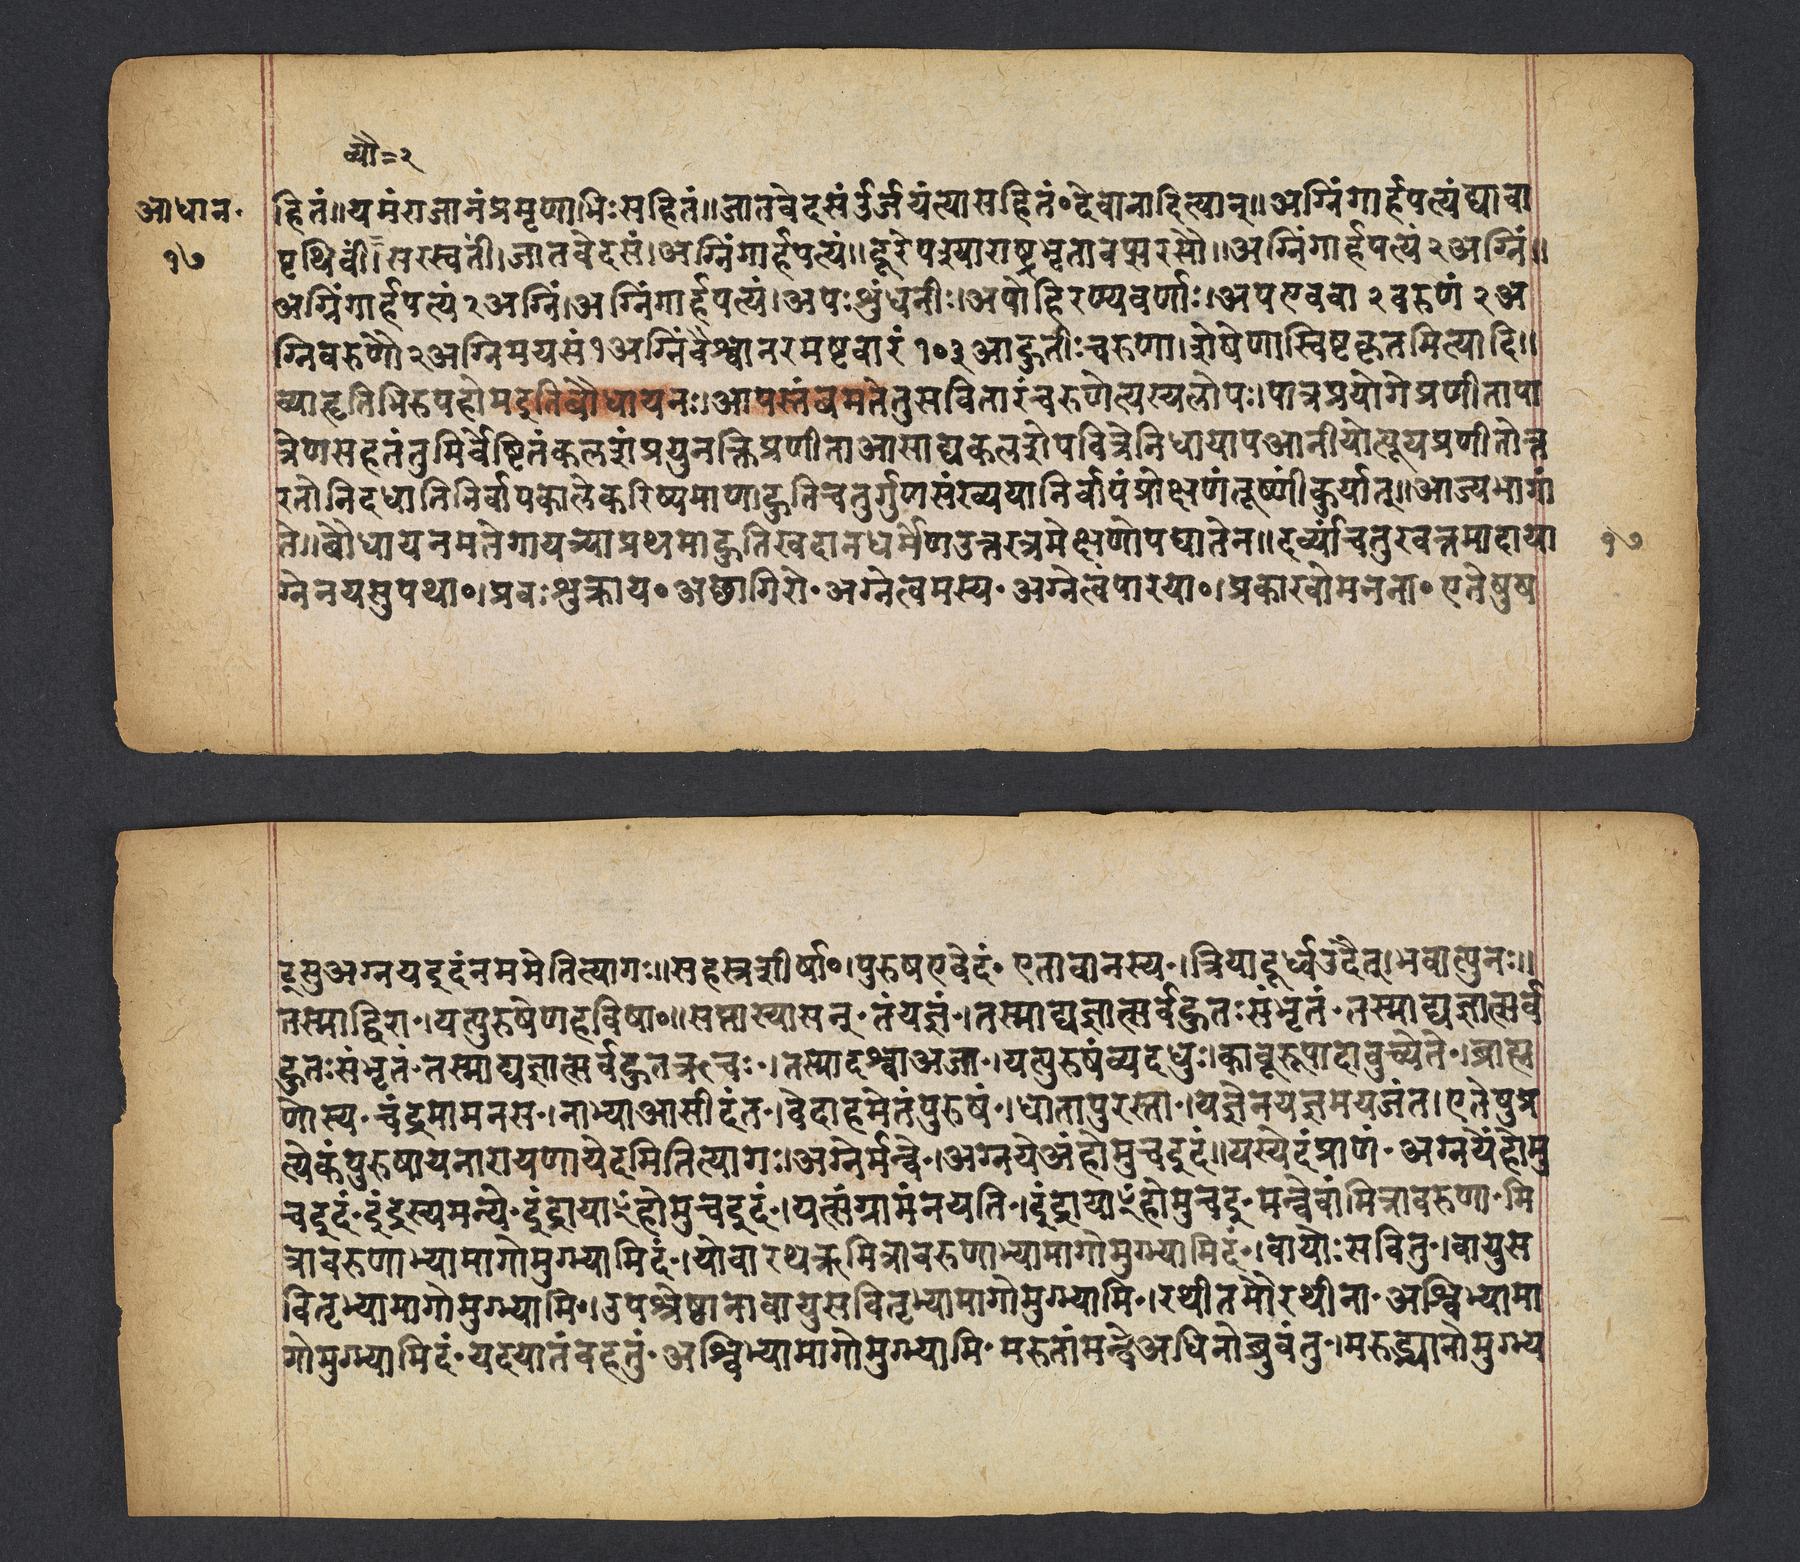 व्यौ=२
आधान॰
१७
हितं॥यमंराजानंप्रमृणाभिःसहितं॥जातवेदसंउर्जयंत्यासहितं॰देवानादित्यान्॥अग्निंगार्हपत्यंद्यावा
पृथिवीं।सरस्वतीं।जातवेदसं।अग्निंगार्हपत्यं॥दूरेपश्याराष्ट्रभृतावप्सरसौ॥अग्निंगार्हपत्यं२अग्निं॥
अग्निंगार्हपत्यं२अग्निं।अग्निंगार्हपत्यं।अपःशुंधनीः।अपोहिरण्यवर्णाः।अपएववा२वरुणं२अ
ग्निवरुणौ२अग्निमयसं१अग्निंवैश्वानरमष्टवारं१०३आहुतीःचरुणा।शेषेणास्विष्टकृतमित्यादि॥
व्याहृतिभिरुपहोमइतिबौधायनः।आपस्तंबमतेतुसवितारंचरुणेत्यस्यलोपः।पात्रप्रयोगेप्रणीतापा
त्रेणसहतंतुभिर्वेष्टितंकलशंप्रयुनक्तिप्रणीताआसाद्यकलशेपवित्रेनिधायापआनीयोत्पूयप्रणीतोत्त
रतोनिदधातिनिर्वापकालेकरिष्यमाणाहुतिचतुर्गुणसंख्ययानिर्वापंप्रोक्षणंतूष्णींकुर्यात्॥आज्यभागां
ते॥बौधायनमतेगायत्र्याप्रथमाहुतिरवदानधर्मेणउत्तरत्रमेक्षणोपघातेन॥दर्व्यांचतुरवत्तमादाया १७
ग्नेनयसुपथा॰।प्रवःशुक्राय॰अछागिरो॰अग्नेत्वमस्य॰अग्नेत्वंपारया॰।प्रकारवोमनना॰एतेषुष
ट्सुअग्नयइदंनममेतित्यागः॥सहस्रशीर्षा॰।पुरुषएवेदं॰एतावानस्य॰।त्रिपादूर्ध्वउदैत्।भवात्पुनः॥
तस्माद्विरा॰।यत्पुरुषेणहविषा॰॥सप्तास्यासन्॰तंयज्ञं॰।तस्माद्यज्ञात्सर्वहुतःसंभृतं॰तस्माद्यज्ञात्सर्व
हुतःसंभृतं॰तस्माद्यज्ञात्सर्वहुतऋचः॰।तस्मादश्वाअजा॰।यत्पुरुषंव्यदधुः।कावूरूपादावुच्येते॰।ब्राह्म
णोस्य॰चंद्रमामनस॰।नाभ्याआसीदंत॰।वेदाहमेतंपुरुषं॰।धातापुरस्ता॰।यज्ञेनयज्ञमयजंत।एतेषुप्र
त्येकंपुरुषायनारायणायेदमितित्यागः।अग्नेर्मन्वे॰।अग्नयेअंहोमुचइदं॥यस्येदंप्राणं॰अग्नयेंहोमु
चइदं॰इंद्रस्यमन्ये॰इंद्रायाꣳहोमुचइदं॰।यत्संग्रामंनयति॰।इंद्रायाꣳहोमुचइ॰मन्वेवांमित्रावरुणा॰मि
त्रावरुणाभ्यामागोमुग्भ्यामिदं॰।योवारथऋमित्रावरुणाभ्यामागोमुग्भ्यामिदं॰।वायोःसवितु॰।वायुस
वितृभ्यामागोमुग्भ्यामि॰।उपश्रेष्ठानावायुसवितृभ्यामागोमुग्भ्यामि॰।रथीतमौरथीना॰अश्विभ्यामा
गोमुग्भ्यामिदं॰यदयातंवहतुं॰अश्विभ्यामागोमुग्भ्यामि॰मरुतांमन्वेअधिनोब्रुवंतु॰।मरुद्भ्यानोमुग्भ्य